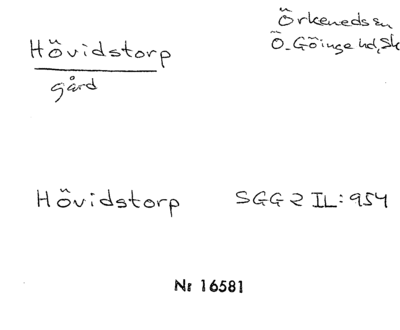 Hövidstorp
gård
Örkeneds sn
Ö. Göinge hd, Sk
Hövidstorp SGG 2 IL: 954
Nr 16581